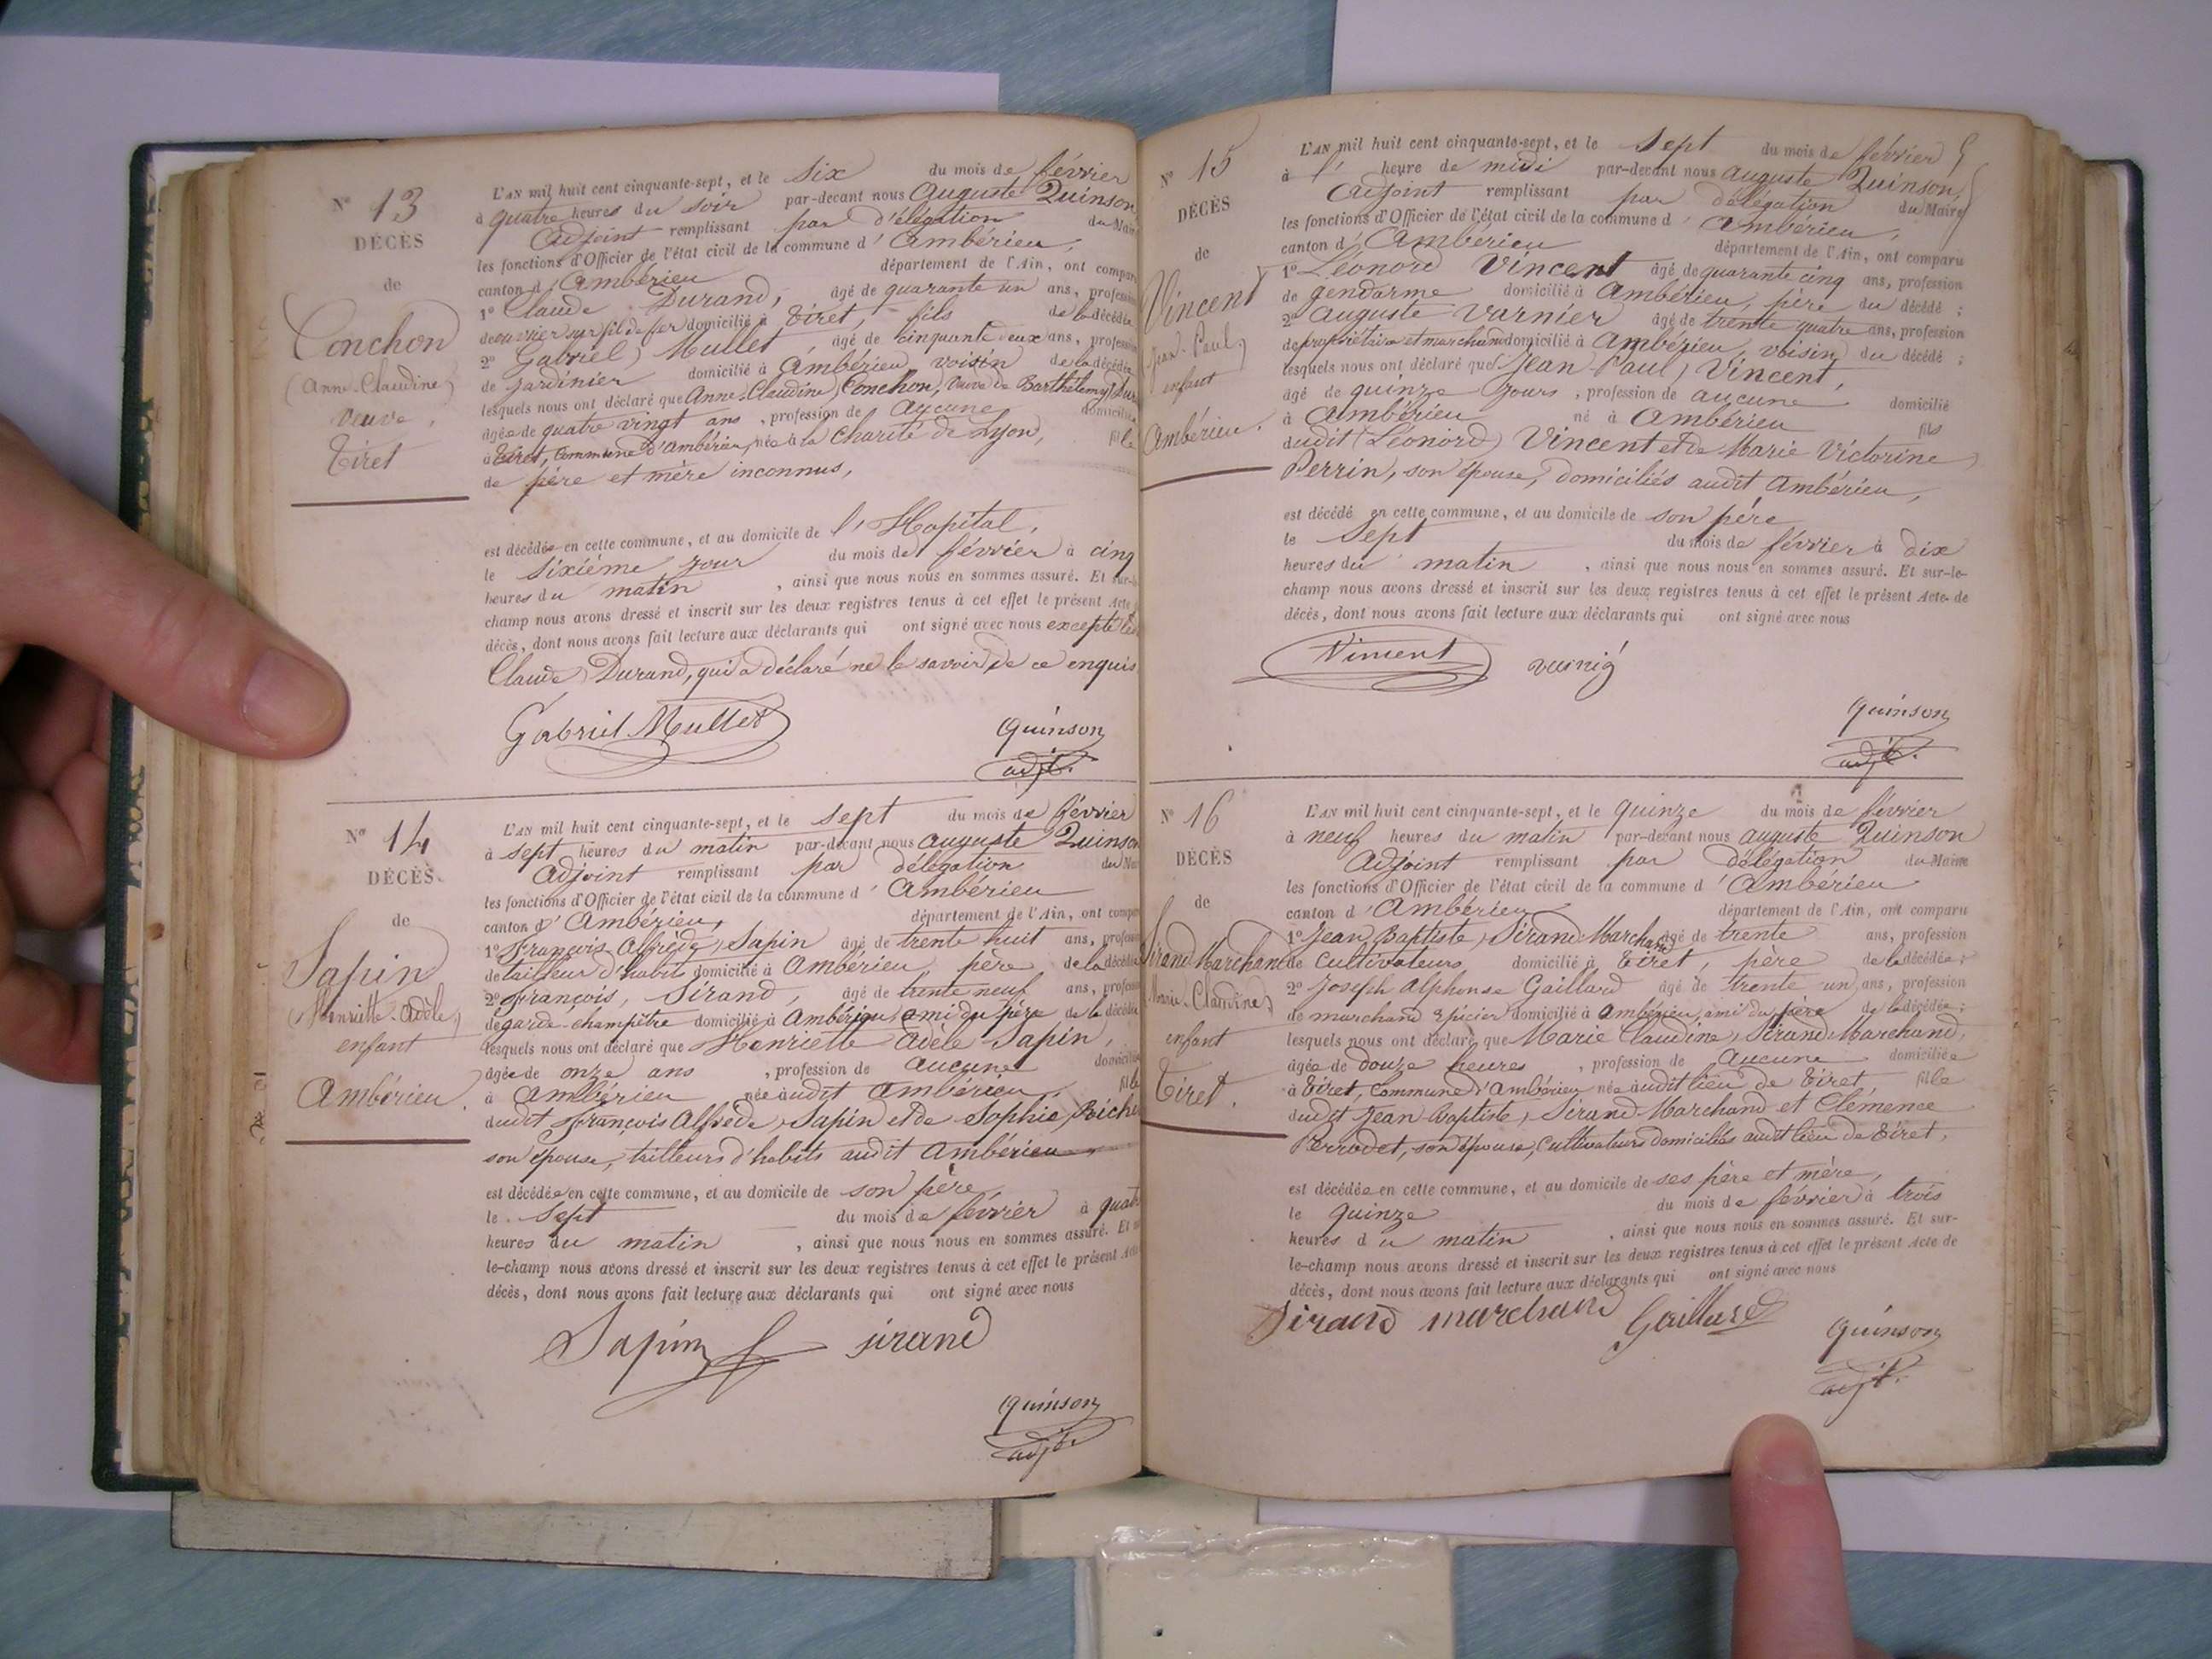 N° 13
DÉCÈS
de
Conchon
(Anne-Claudine)
veuve
Tiret
L'AN mil huit cent cinquante-sept, et le six du mois de février
à quatre heures du soir par-devant nous Auguste Quinson,
Adjoint remplissant par délégation du Maire
les fonctions d'Officier de l'état civil de la commune d'Ambérieu,
canton d'Ambérieu département de l'Ain, ont comparu
1° Claude Durand, âgé de quarante un ans, profession
d'ouvrier sur fil de fer domicilié à Tiret, fils de la décédée
2° Gabriel Mullet, âgé de cinquante deux ans, profession
de jardinier domicilié à Ambérieu, voisin de la décédée
lesquels nous ont déclaré que Anne-Claudine Conchon, veuve de Barthélemy
âgée de quatre vingt ans, profession de aucune domiciliée
à Tiret, commune d'Ambérieu, née à la Charité de Lyon, fille
de père et mère inconnus,
est décédée en cette commune, et au domicile de l'Hopital,
le sixième jour du mois de février à cinq
heures du matin, ainsi que nous nous en sommes assuré. Et sur-le-
champ nous avons dressé et inscrit sur les deux registres tenus à cet effet le présent Acte
décès, dont nous avons fait lecture aux déclarants qui ont signé avec nous excepté
Claude Durand, qui a déclaré ne le savoir de ce enquis
Gabriel Mullet
Quinson
adjt.
N° 14
DÉCÈS
de
Sapin
(Henriette-Adèle)
enfant
Ambérieu.
L'AN mil huit cent cinquante-sept, et le sept du mois de février
à sept heures du matin par-devant nous Auguste Quinson
Adjoint remplissant par délégation du Maire
les fonctions d'Officier de l'état civil de la commune d'Ambérieu
canton d'Ambérieu, département de l'Ain, ont comparu
1° François Alfrède Sapin âgé de trente huit ans, profession
de tailleur d'habits domicilié à Ambérieu, père de la décédée
2° François, Sirand, âgé de trente neuf ans, profession
de garde-champêtre domicilié à Ambérieu, ami du père de la décédée
lesquels nous ont déclaré que Henriette Adèle Sapin,
âgée de onze ans, profession de aucune domiciliée
à Ambérieu née audit Ambérieu, fille
dudit François Alfrède Sapin et de Sophie,
son épouse, tailleurs d'habits audit Ambérieu
est décédée en cette commune, et au domicile de son père
le sept du mois de février à quatre
heures du matin, ainsi que nous nous en sommes assuré. Et sur-
le-champ nous avons dressé et inscrit sur les deux registres tenus à cet effet le présent Acte
décès, dont nous avons fait lecture aux déclarants qui ont signé avec nous
Sapin sirand
Quinson
adjt.
N° 15
DÉCÈS
de
Vincent
(Jean-Paul)
enfant
Ambérieu.
L'AN mil huit cent cinquante-sept, et le sept du mois de février
à l' heure de midi par-devant nous Auguste Quinson,
Adjoint remplissant par délégation du Maire
les fonctions d'Officier de l'état civil de la commune d'Ambérieu,
canton d'Ambérieu département de l'Ain, ont comparu
1° Léonord Vincent âgé de quarante cinq ans, profession
de gendarme domicilié à Ambérieu, père du décédé ;
2° Auguste Varnier âgé de trente quatre ans, profession
de propriétaire et marchand domicilié à Ambérieu, voisin du décédé ;
lesquels nous ont déclaré que Jean Paul Vincent,
âgé de quinze jours, profession de aucune domicilié
à Ambérieu né à Ambérieu fils
dudit (Léonord) Vincent et de Marie Victorine
Perrin, son épouse, domiciliés audit Ambérieu,
est décédé en cette commune, et au domicile de son père
le sept du mois de février à dix
heures du matin, ainsi que nous nous en sommes assuré. Et sur-le-
champ nous avons dressé et inscrit sur les deux registres tenus à cet effet le présent Acte de
décès, dont nous avons fait lecture aux déclarants qui ont signé avec nous
Vincent
Quinson
adjt.
N° 16
DÉCÈS
de
Sirand Marchand
(Marie-Claudine)
enfant
Tiret.
L'AN mil huit cent cinquante-sept, et le quinze du mois de février
à neuf heures du matin par-devant nous Auguste Quinson
Adjoint remplissant par délégation du Maire
les fonctions d'Officier de l'état civil de la commune d'Ambérieu
canton d'Ambérieu département de l'Ain, ont comparu
1° Jean Baptiste Sirand Marchand âgé de trente ans, profession
de cultivateurs domicilié à Tiret, père de la décédée ;
2° Joseph Alphonse Gaillard âgé de trente un ans, profession
de marchand épicier domicilié à Ambérieu, ami du père de la décédée ;
lesquels nous ont déclaré que Marie Claudine, Sirand Marchand,
âgée de douze heures, profession de aucune domiciliée
à Tiret, commune d'Ambérieu née audit lieu de Tiret, fille
dudit Jean Baptiste, Sirand Marchand et Clémence
Perrodet, son épouse, cultivateurs domiciliés audit lieu de Tiret,
est décédée en cette commune, et au domicile de ses père et mère,
le quinze du mois de février à trois
heures du matin, ainsi que nous nous en sommes assuré. Et sur-
le-champ nous avons dressé et inscrit sur les deux registres tenus à cet effet le présent Acte de
décès, dont nous avons fait lecture aux déclarants qui ont signé avec nous
Sirand marchand Gaillard
Quinson
adjt.